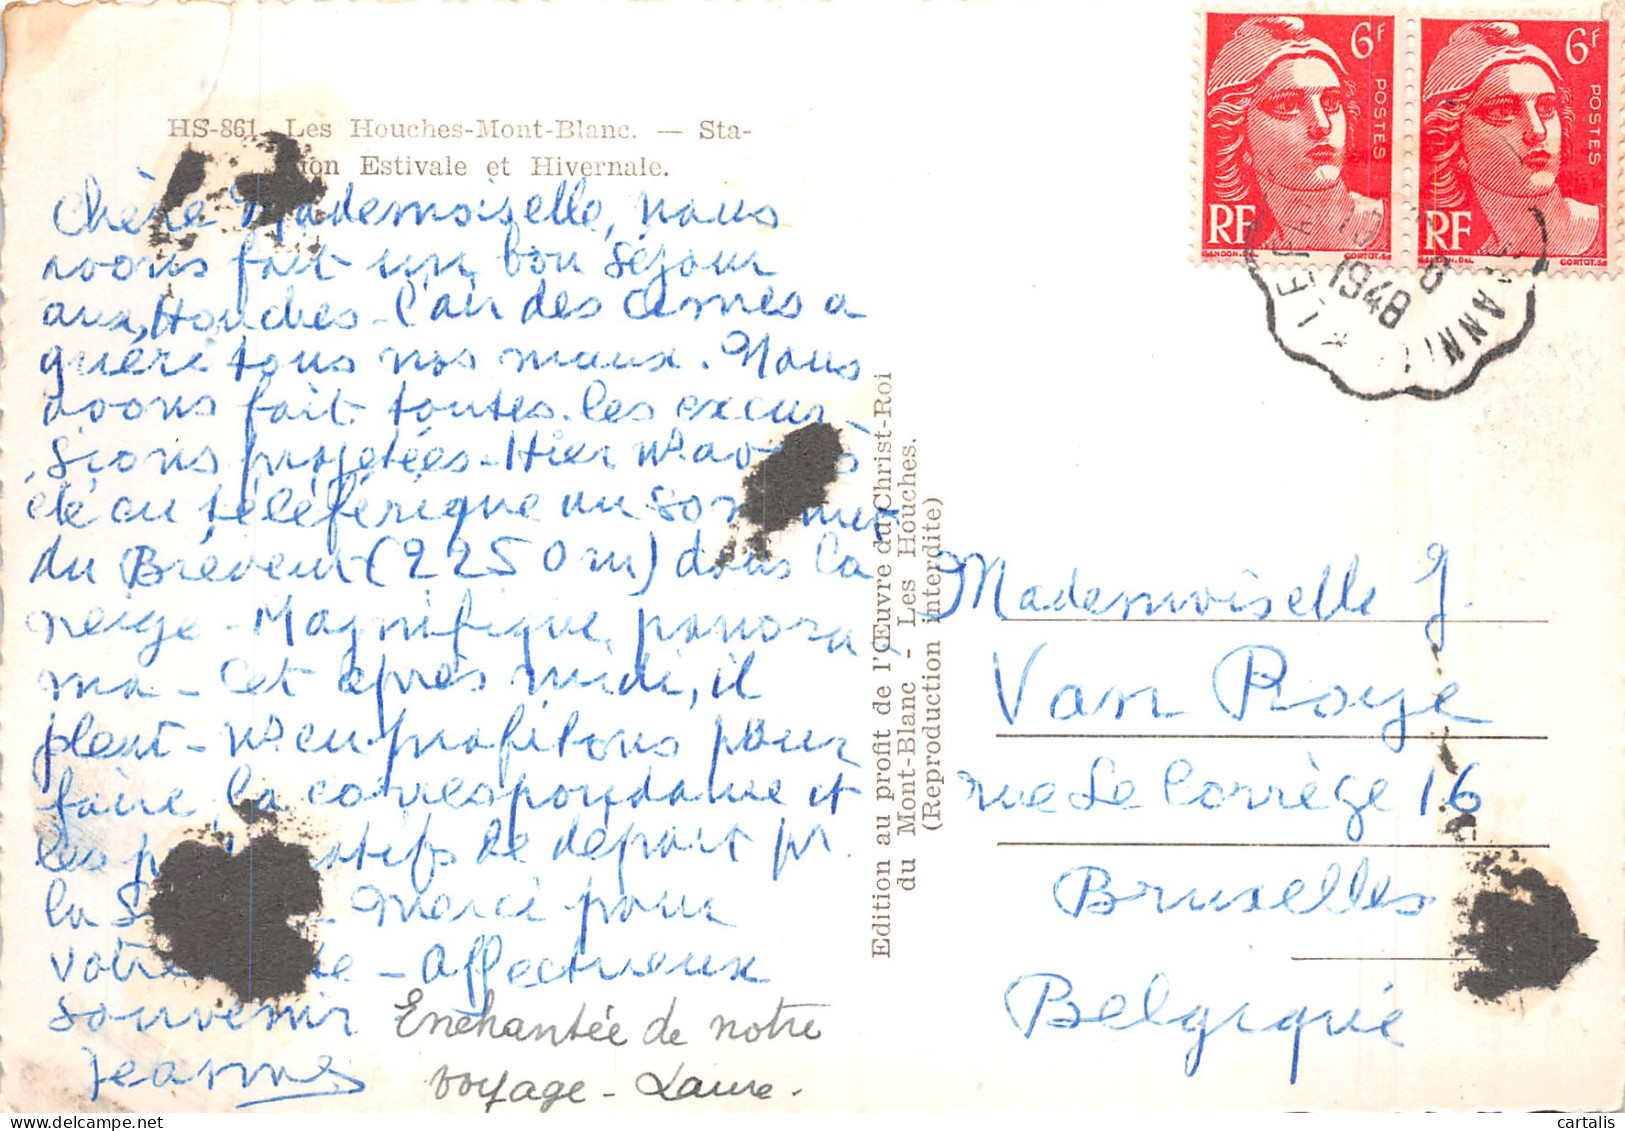 HS-861 Les Houches-Mont-Blanc. — Sta-
ion Estivale et Hivernale.
Chère Mademoiselle, nous
avons fait un bon séjour
aux Houches - l'air des cimes a
guéri tous nos maux. Nous
avons fait toutes les excur
sions projetées - Hier ns avons
été au téléférique au sommet
du Brévent (2250 m) dans la
neige - Magnifique panora
ma - Cet après midi, il
pleut - ns en profitons pour
faire la correspondance et
les de départ pr.
la - Merci pour
votre - Affectueux
souvenir
Jeanne
Enchantée de notre
voyage - Laure.
Edition au profit de l'Œuvre du Christ-Roi
du Mont-Blanc - Les Houches.
(Reproduction interdite)
6F
POSTES
RF
GANDON.Del.
CORTOT.Sc
6F
POSTES
RF
GANDON.Del.
CORTOT.Sc
1948
Mademoiselle J.
Van Roye
rue Le Corrège 16
Bruxelles
Belgique
cartalis
www.delcampe.net